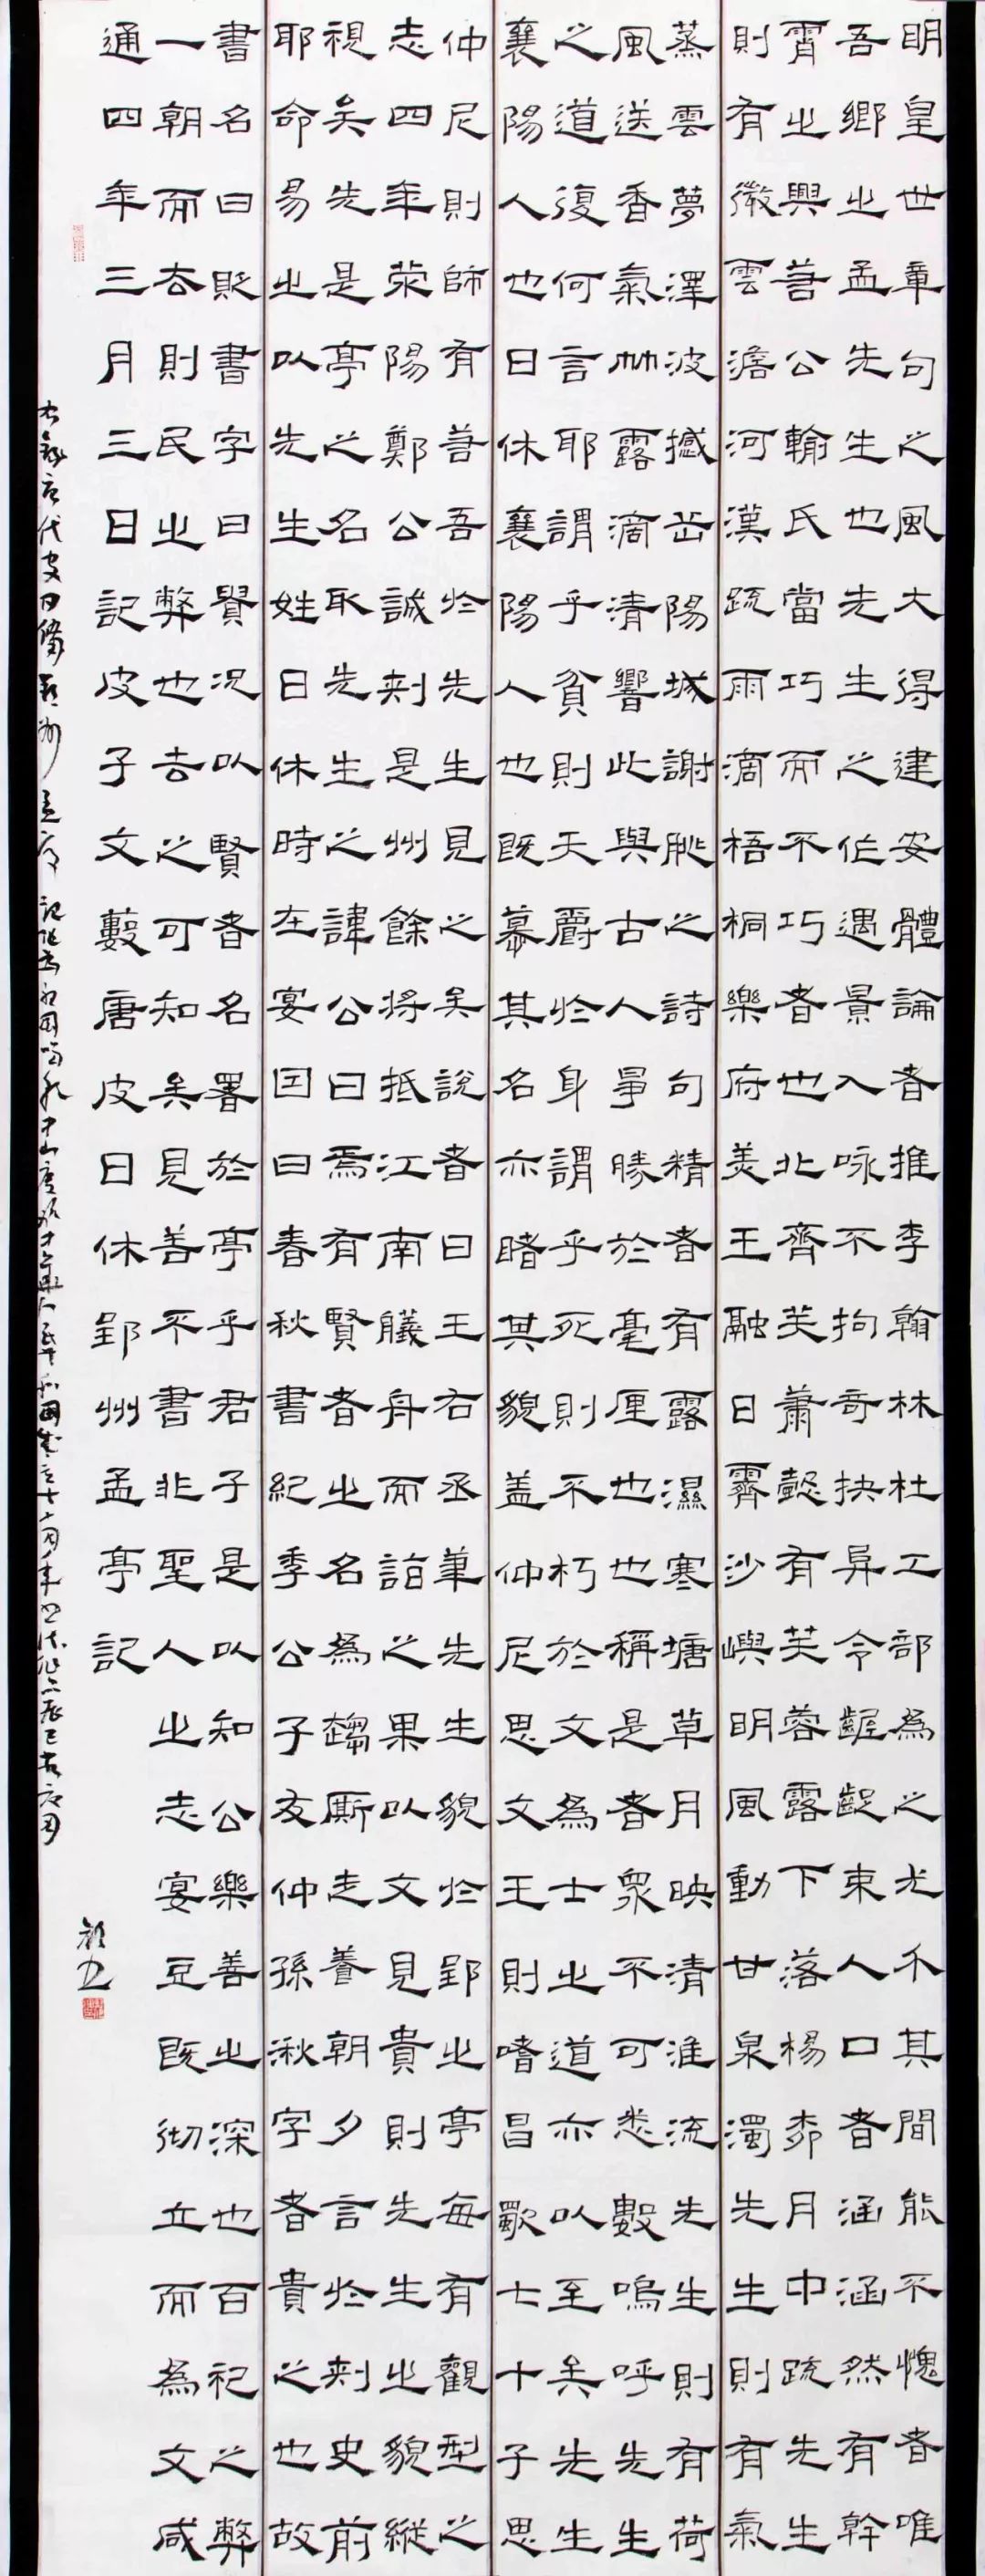 明皇世章句之風大得建安體論者推李翰林杜工部為之尤介其間能不愧者唯
吾鄉之孟先生也先生之作遇景入咏不拘奇抉异令齷齪束人口者涵涵然有幹
霄之興若公輸氏當巧而不巧者也北齊美蕭愨有芙蓉露下落楊柳月中疏先生
則有微雲澹河漢疏雨滴梧桐樂府美王融日霽沙嶼明風動甘泉濁先生則有氣
蒸雲夢澤波撼岳陽城謝朓之詩句精者有露濕寒塘草月映清淮流先生則有荷
風送香氣竹露滴清響此與古人爭勝於毫厘也也稱是者眾不可悉數嗚呼先生
之道復何言耶謂乎貧則天爵於身謂乎死則不朽於文為士之道亦以至矣先生
襄陽人也日休襄陽人也既慕其名亦睹其貌蓋仲尼思文王則嗜昌歜七十子思
仲尼則師有若吾於先生見之矣說者曰王右丞筆先生貌於郢之亭每有觀型之
志四年滎陽鄭公諴刺是州餘將抵江南艤舟而詣之果以文見貴則先生之貌縱
視矣先是亭之名取先生之諱公曰焉有賢者之名為趨廝走養朝夕言於刺史前
耶命易之以先生姓日休時在宴因曰春秋書紀季公子友仲孫湫字者貴之也故
書名曰貶書字曰賢況以賢者名署於亭乎君子是以知公樂善之深也百祀之弊
一朝而去則民之弊也去之可知矣見善不書非聖人之志宴豆既徹立而為文咸
通四年三月三日記皮子文藪唐皮日休郢州孟亭記
右錄唐代皮日休郢州孟亭記